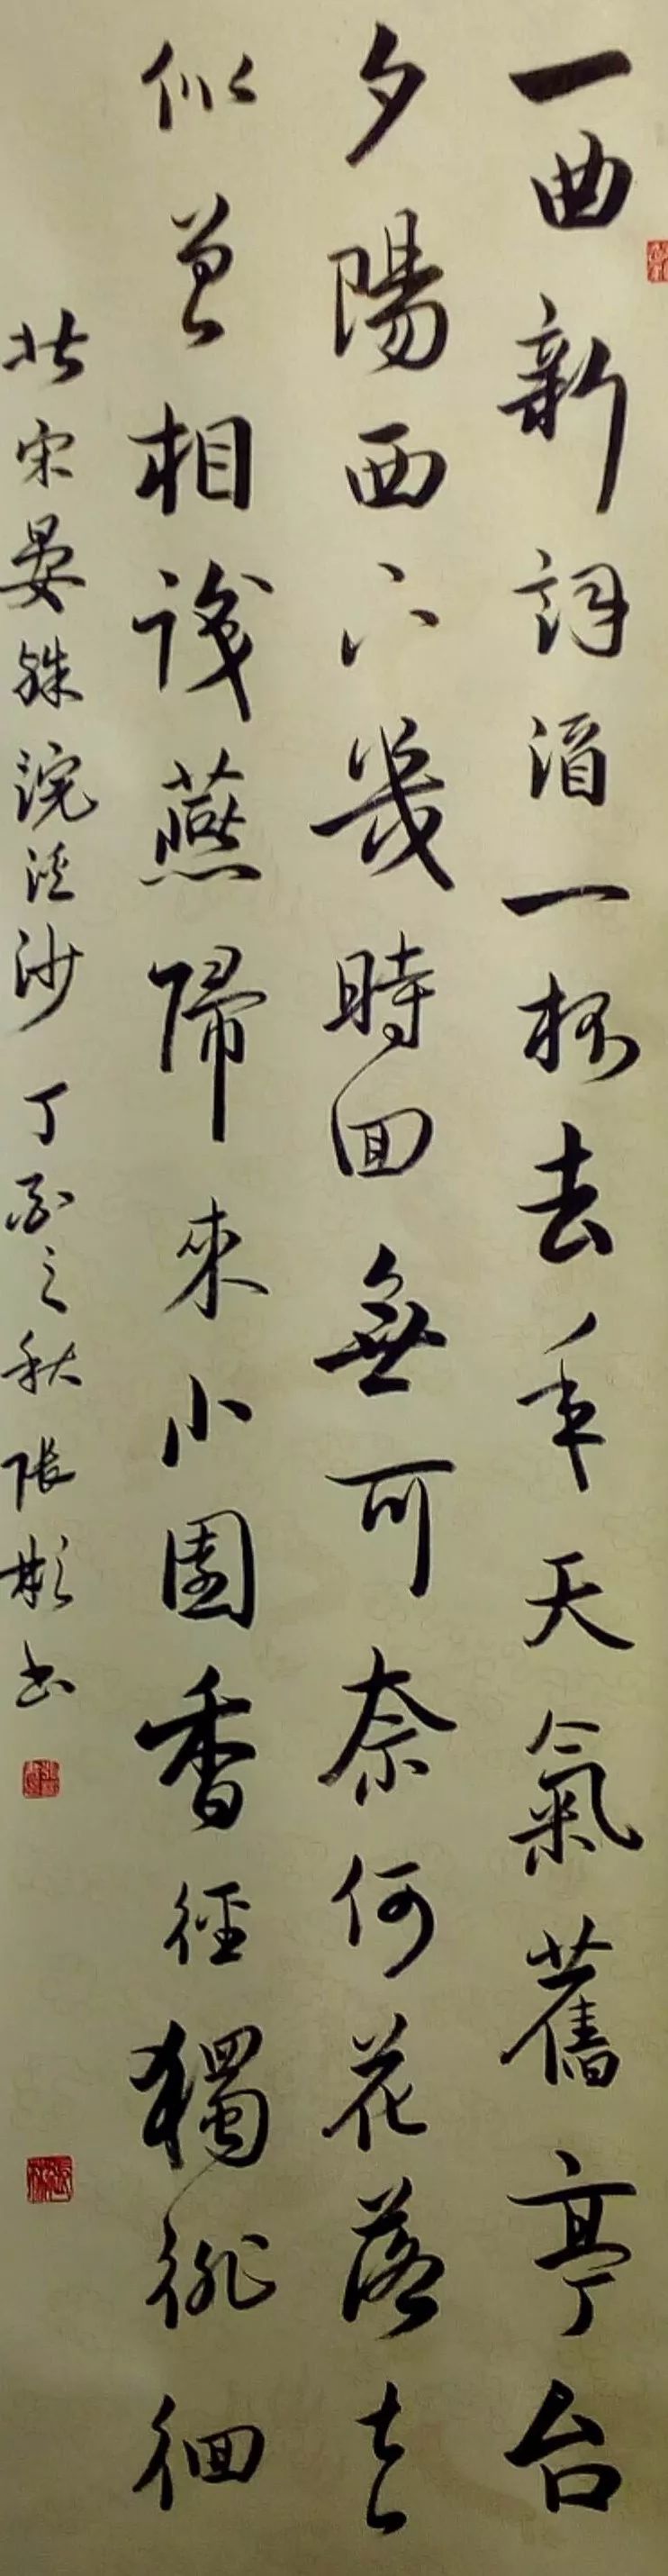 一曲新詞酒一杯去年天氣舊亭台
夕陽西下幾時回無可奈何花落去
似曾相識燕歸來小園香徑獨徘徊
北宋晏殊浣溪沙 丁酉之秋 張彬書